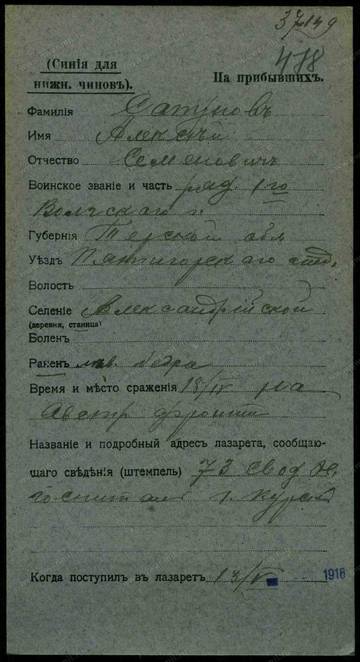 37149
418
(Синія для
нижн. чиновъ).
На прибывшихъ.
Фамилія Сатуновъ
Имя Алексѣй
Отчество Семеновичъ
Воинское званіе и часть ряд. 1го
Волгскаго п.
Губернія Терской обл
Уѣздъ Пятигорскаго отд.
Волость
Селеніе Александрійской
(деревня, станица)
Боленъ
Раненъ бедра
Время и мѣсто сраженія 18/IV на
Австр фронтѣ
Названіе и подробный адресъ лазарета, сообщаю-
щаго свѣдѣнія (штемпель) 73 свод
госпиталь г. Курск
Когда поступилъ въ лазаретъ 1916